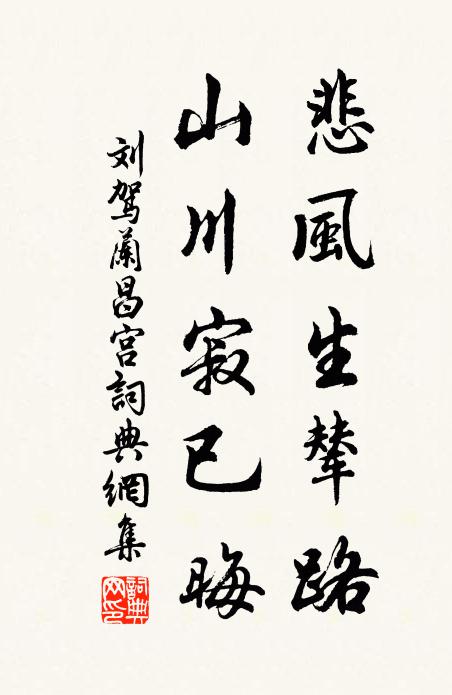 悲風生輦路
山川寂已晦
刘駕蘭昌宮詞典網集
詞典网印